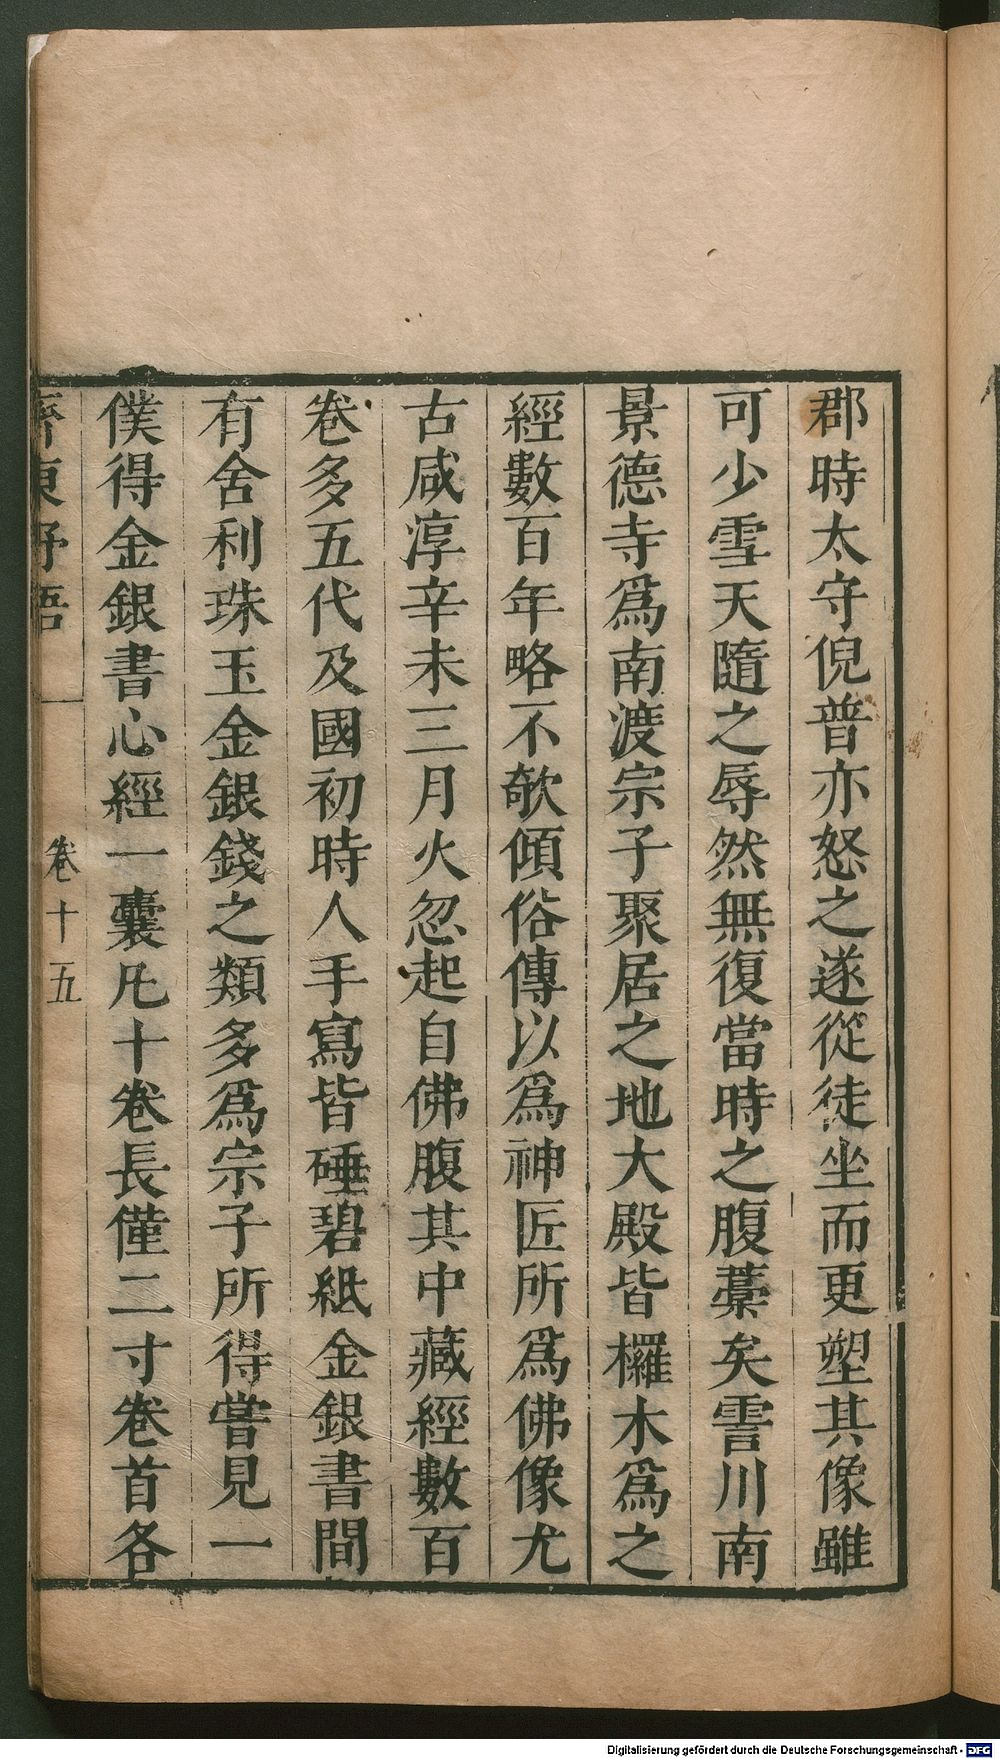 郡時太守倪普亦怒之遂從徒坐而更塑其像雖
可少雪天隨之辱然無復當時之腹藁矣霅川南
景德寺爲南渡宗子聚居之地大殿皆欏木爲之
經數百年略不欹傾俗傳以爲神匠所爲佛像尤
古咸淳辛未三月火忽起自佛腹其中藏經數百
卷多五代及國初時人手寫皆硾碧紙金銀書間
有舍利珠玉金銀錢之類多爲宗子所得嘗見一
僕得金銀書心經一囊凡十卷長僅二寸卷首各
齊東野語
卷十五
Digitalisierung gefördert durch die Deutsche Forschungsgemeinschaft - DFG